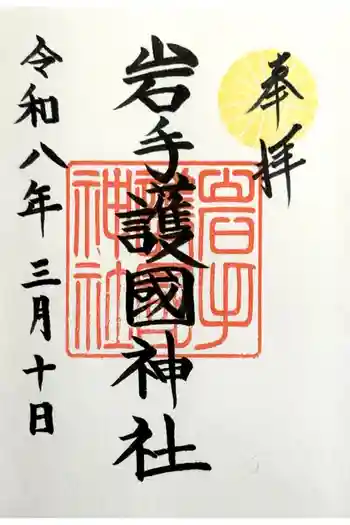 奉拝
岩手護國神社
岩手護國神社
令和八年三月十日